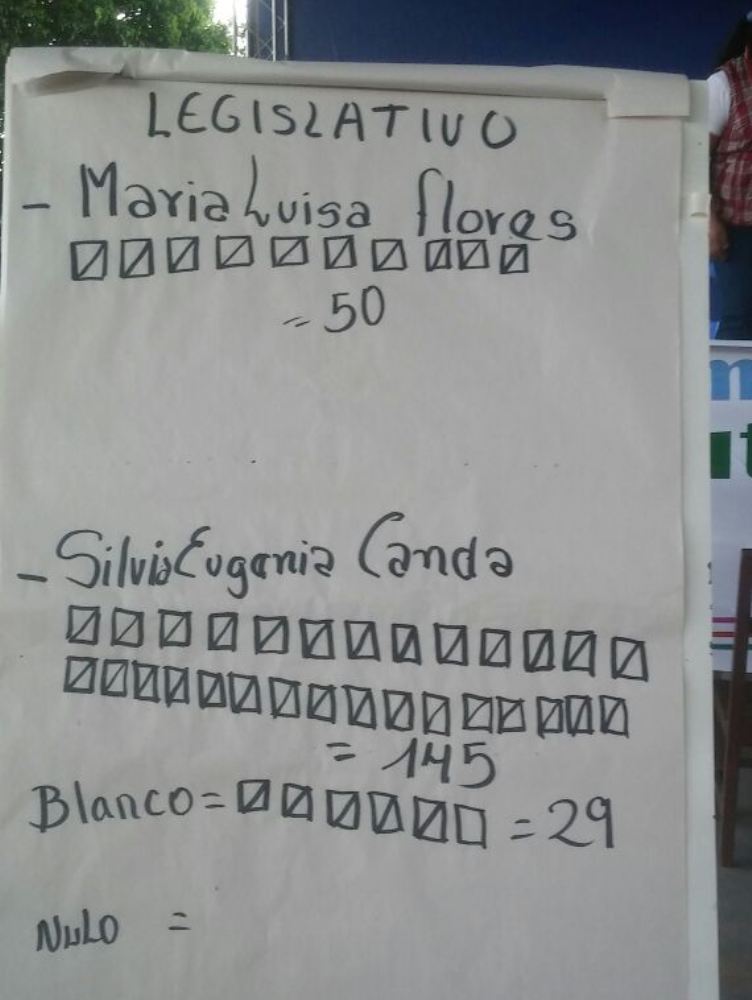 LEGISLATIVO
- Maria Luisa flores
= 50
- Silvia Eugenia Canda
= 145
Blanco = = 29
NuLO =